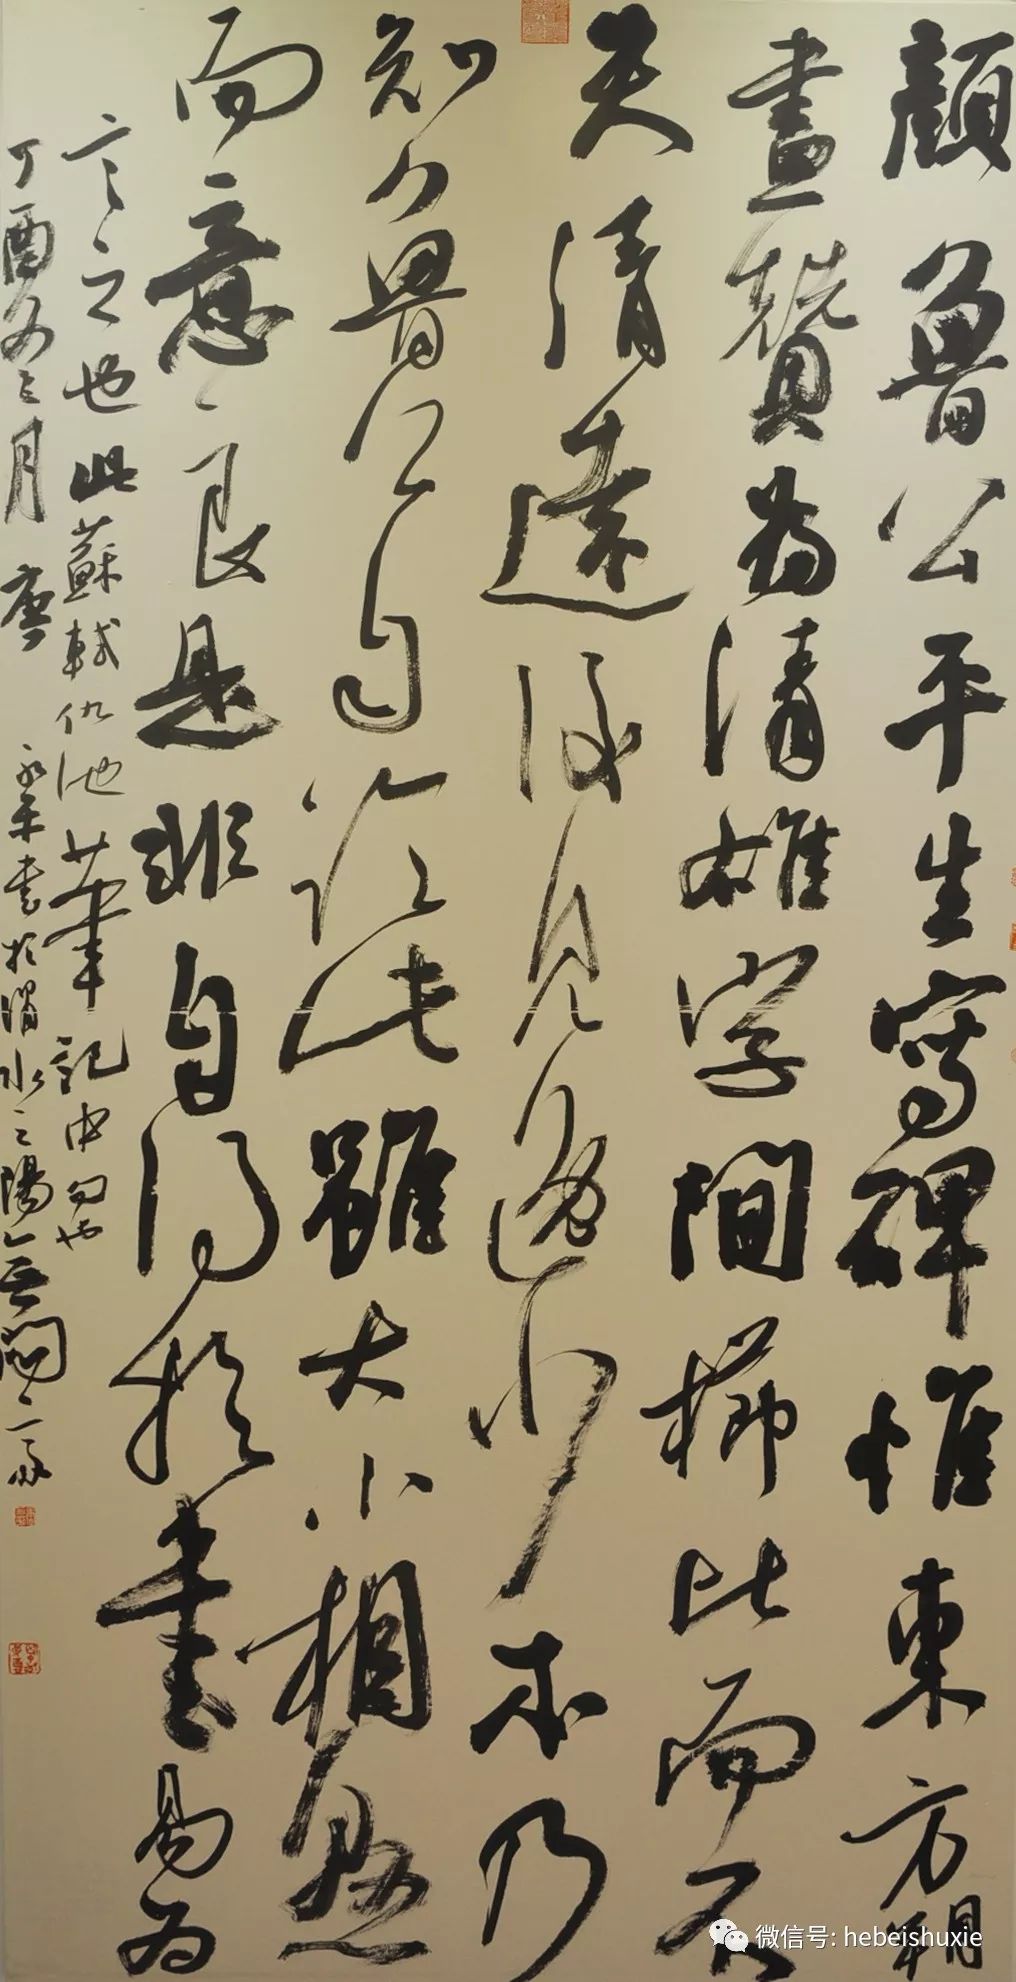 顏魯公平生寫碑惟東方朔
畫贊為清雄字間櫛比而不
失清遠後見逸少本乃
知魯公字字臨此書雖大小相懸
而意良是非自得於書易為
言之也此蘇軾仇池筆記中句也
丁酉冬三月唐永平書於渭水之陽無聞齋
微信号: hebeishuxie